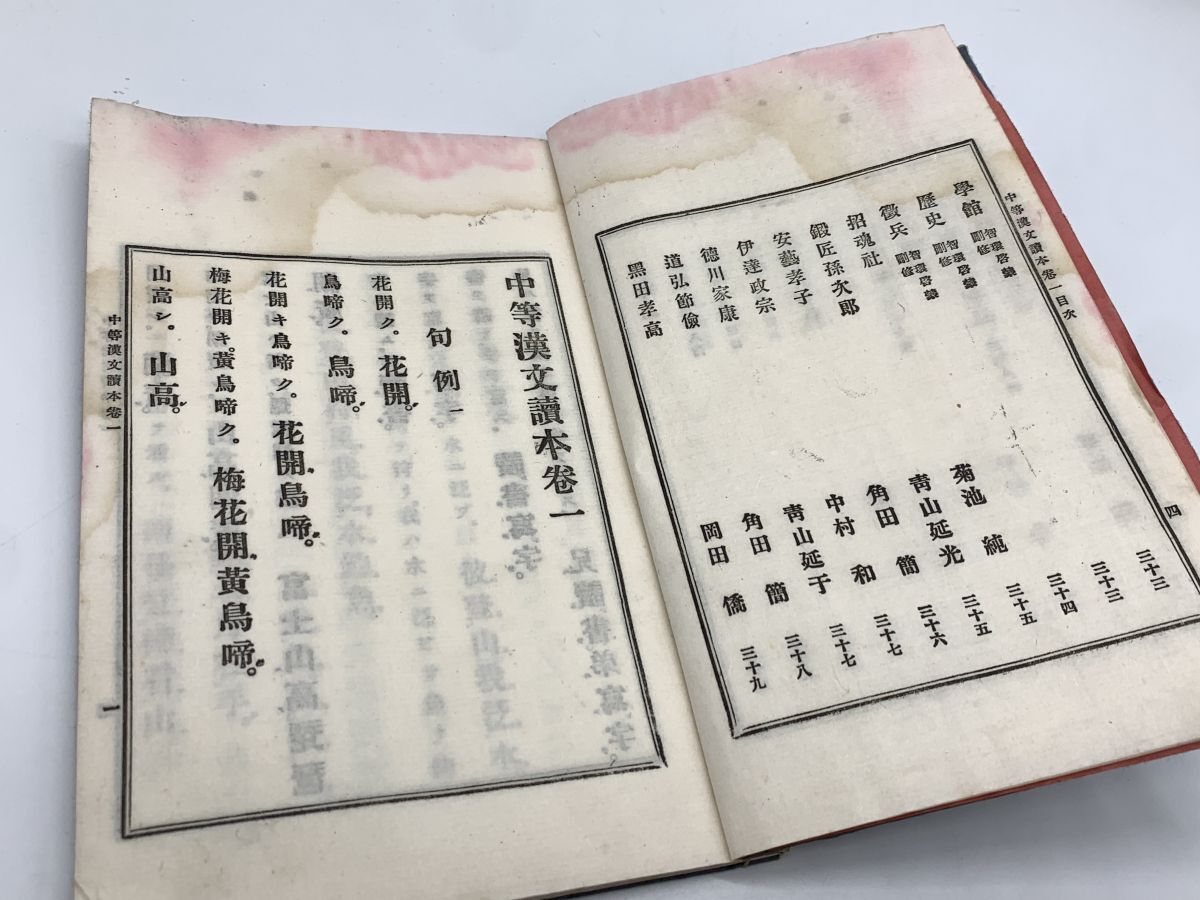 中等漢文讀本卷一目次 四
學館 智環啓蒙刪修 三十三
歷史 智環啓蒙刪修 三十三
徵兵 智環啓蒙刪修 三十四
招魂社 菊池純 三十五
鍛匠孫次郎 青山延光 三十五
安藝孝子 角田簡 三十六
伊達政宗 中村和 三十七
德川家康 青山延于 三十七
道弘節儉 角田簡 三十八
黑田孝高 岡田僑 三十九
中等漢文讀本卷一
句例一
花開ク。花開。
鳥啼ク。鳥啼。
花開キ鳥啼ク。花開鳥啼。
梅花開キ。黃鳥啼ク。梅花開黃鳥啼。
山高シ。山高。
中等漢文讀本卷一 一